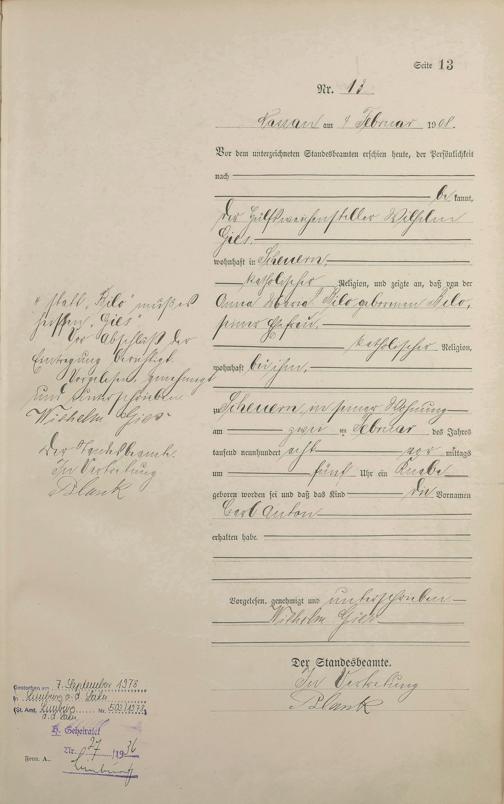 Seite 13
Nr. 13
Nassau am 4 Februar 1908.
Vor dem unterzeichneten Standesbeamten erschien heute, der Persönlichkeit
nach
be kannt,
der Hülfsweichensteller Wilhelm
Gies
wohnhaft in Scheuern,
katholischer Religion, und zeigte an, daß von der
Anna Maria Kilo geborenen Kilo,
seiner Ehefrau,
katholischer Religion,
wohnhaft bei ihm,
zu Scheuern, in seiner Wohnung
am zwei ten Februar des Jahres
tausend neunhundert acht vor mittags
um fünf Uhr ein Knabe
geboren worden sei und daß das Kind die Vornamen
Carl Anton
erhalten habe.
Vorgelesen, genehmigt und unterschrieben
Wilhelm Gies
Der Standesbeamte.
In Vertretung
Blank
statt "Kilo" muß es
heißen "Gies"
Vor Abschluß der
Eintragung berichtigt.
Vorgelesen, genehmigt
und unterschrieben
Wilhelm Gies
Der Standesbeamte.
In Vertretung
Blank
Gestorben am 7. September 1978
in Limburg a. d. Lahn
(St. Amt Limburg Nr. 502/1978)
a. d. Lahn
Geheiratet
Nr. 27 /1936
Limburg
Form. A.